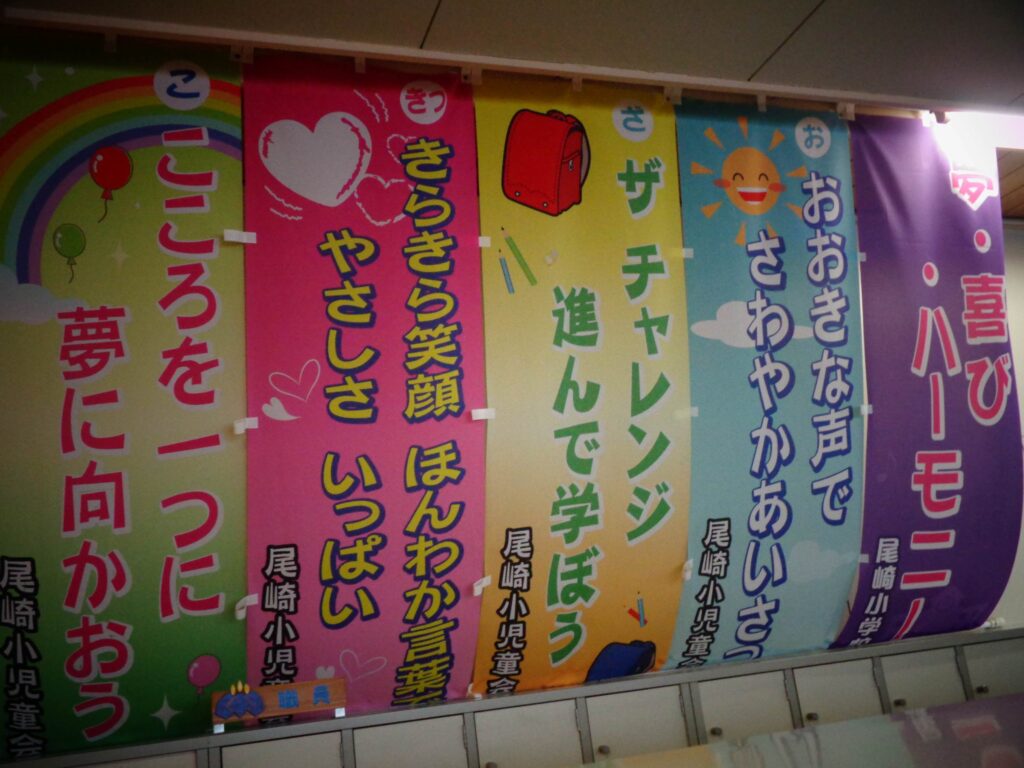 夢・喜び
・ハーモニー
尾崎小学校
お
おおきな声で
さわやかあいさつ
尾崎小児童会
ざ
ザ チャレンジ
進んで学ぼう
尾崎小児童会
きっ
きらきら笑顔 ほんわか言葉
やさしさ いっぱい
尾崎小児童
こ
こころを一つに
夢に向かおう
尾崎小児童会
職員